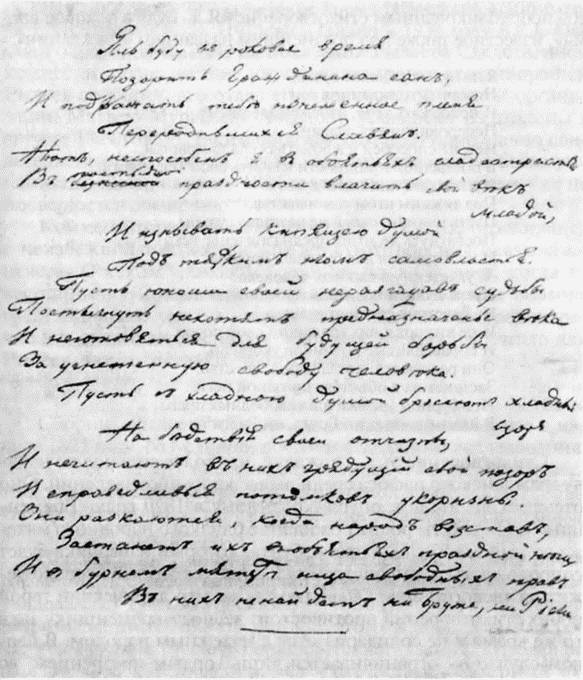 Я ль буду въ роковое время
Позорить Гражданина санъ,
И подражать тебѣ изнеженное племя
Переродившихся Славянъ.
Нѣтъ, неспособенъ я въ объятьяхъ сладострастья
постыдной
Въ праздности влачить свой вѣкъ
младой,
И изнывать кипящею душой
Подъ тяжкимъ игомъ самовластья.
Пусть юноши своей неразгадавъ судьбы
Постигнуть нехотятъ предназначенье вѣка
И неготовятся для будущей борьбы
За угнетенную свободу человѣка.
Пусть съ хладною душой бросаютъ хладный
взоръ
На бедствiя своей отчизны,
И нечитаютъ въ нихъ грядущiй свой позоръ
И справедливыя потомковъ укоризны.
Они раскаются, когда народъ возставъ,
Застанетъ ихъ въ объятьяхъ праздной нѣги
И въ бурномъ мятежѣ ища свободныхъ правъ
Въ нихъ ненайдетъ ни Брута, ни Рiеги